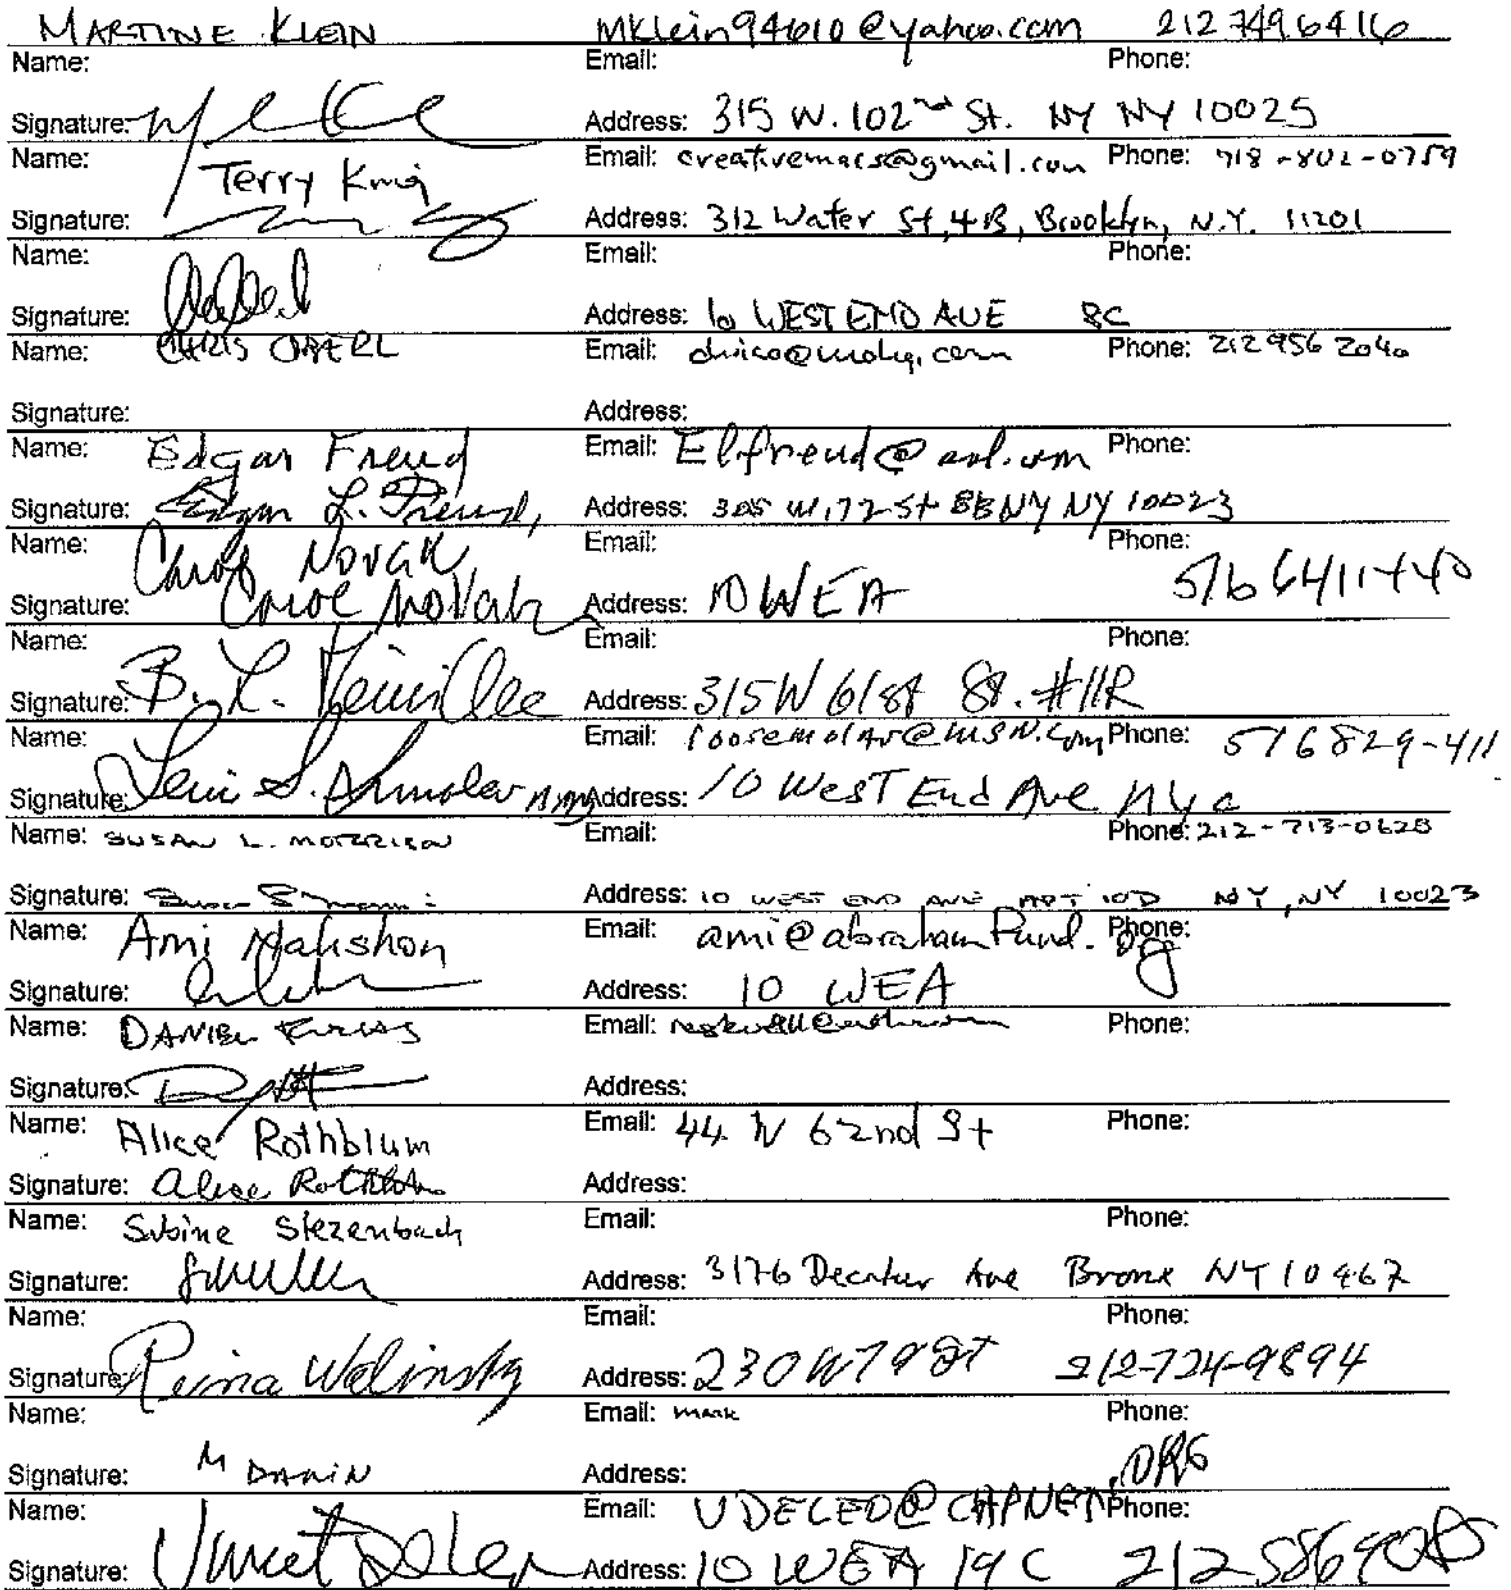 MARTINE KLEIN MKlein94610@yahoo.com 212 749 6416
Name: Email: Phone:
Signature: Address: 315 W. 102nd St. NY NY 10025
Name: Terry King Email: creativemacs@gmail.com Phone: 718-802-0759
Signature: Address: 312 Water St, 4B, Brooklyn, N.Y. 11201
Name: Email: Phone:
Signature: Address: 10 WEST END AVE 8C
Name: CHRIS OBERL Email: Phone: 212 956 2040
Signature: Address:
Name: Edgar Freud Email: Elfreud@aol.com Phone:
Signature: Edgar L. Freud, Address: 305 W. 72 St 8B NY NY 10023
Name: Carol Novak Email: Phone: 516 641 1440
Signature: Carol Novak Address: 10 WEA
Name: Email: Phone:
Signature: B. L. Address: 315 W 61st St. #11R
Name: Email: loosemolar@msn.com Phone: 516 829-411
Signature: S. Address: 10 West End Ave NYC
Name: SUSAN L. MORRISON Email: Phone: 212-713-0628
Signature: Address: 10 WEST END AVE APT 10D NY, NY 10023
Name: Ami Nahshon Email: ami@abrahamfund.org Phone:
Signature: Address: 10 WEA
Name: DANIEL Email: Phone:
Signature: Address:
Name: Alice Rothblum Email: 44 W 62nd St Phone:
Signature: Alice Rothblum Address:
Name: Sabine Stezenbach Email: Phone:
Signature: Address: 3176 Decatur Ave Bronx NY 10467
Name: Email: Phone:
Signature: Reina Wolinsky Address: 230 W 79 St 212-724-9894
Name: Email: mark Phone:
Signature: M Address:
Name: Email: VDELEO@CHPNET.ORG Phone:
Signature: Address: 10 WEA 19C 212 586